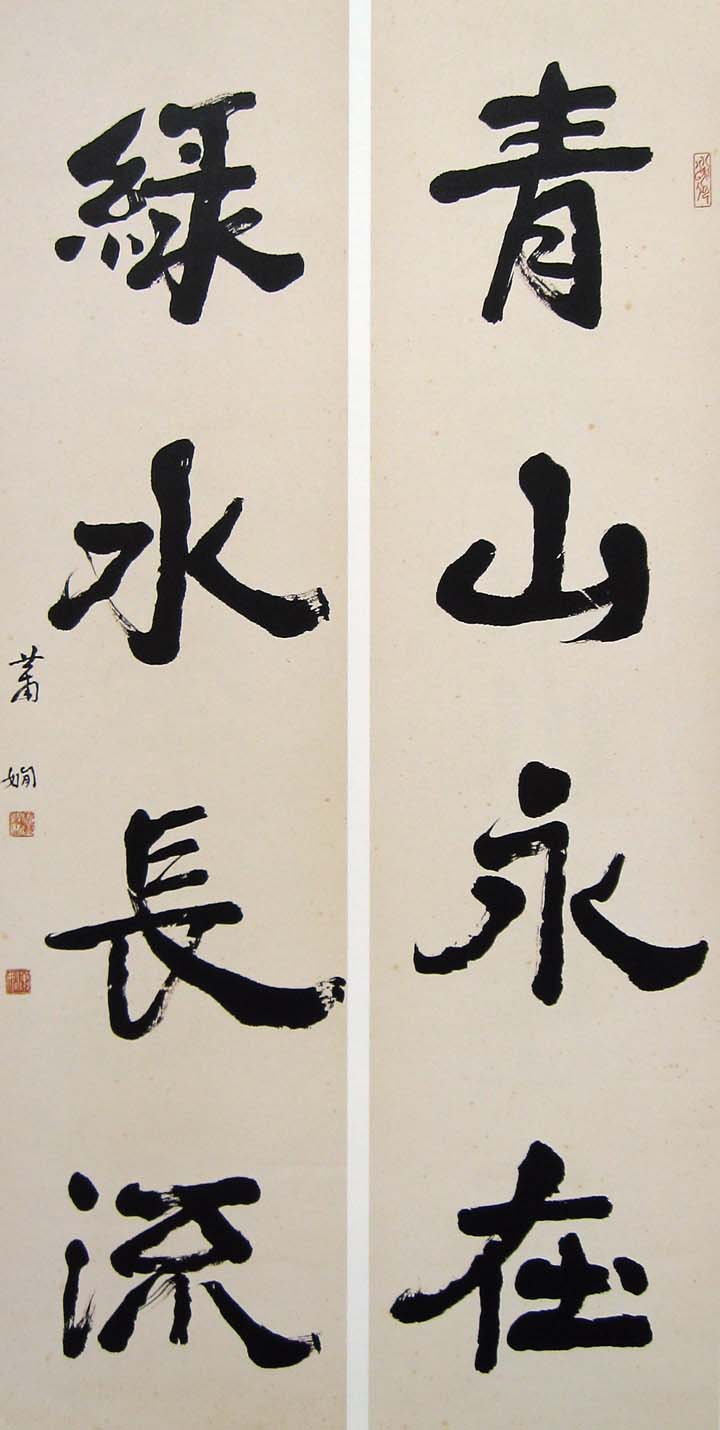 青山永在
綠水長流
蕭嫻